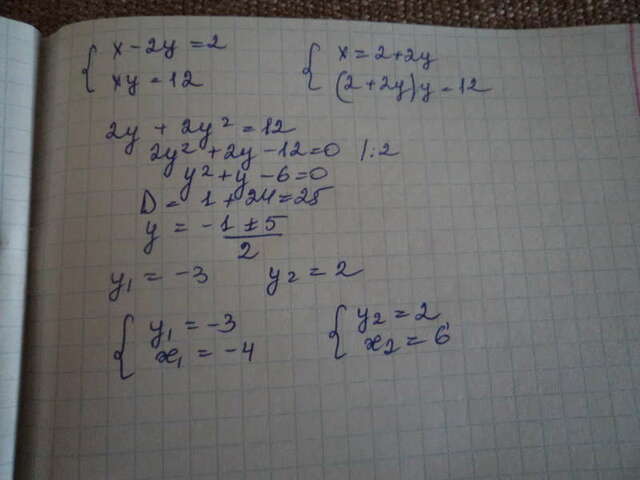 { x - 2y = 2   { x = 2 + 2y
xy = 12   (2 + 2y)y = 12
2y + 2y² = 12
2y² + 2y - 12 = 0 /:2
y² + y - 6 = 0
D = 1 + 24 = 25
y = -1 ± 5
2
y₁ = -3   y₂ = 2
{ y₁ = -3   { y₂ = 2
x₁ = -4   x₂ = 6